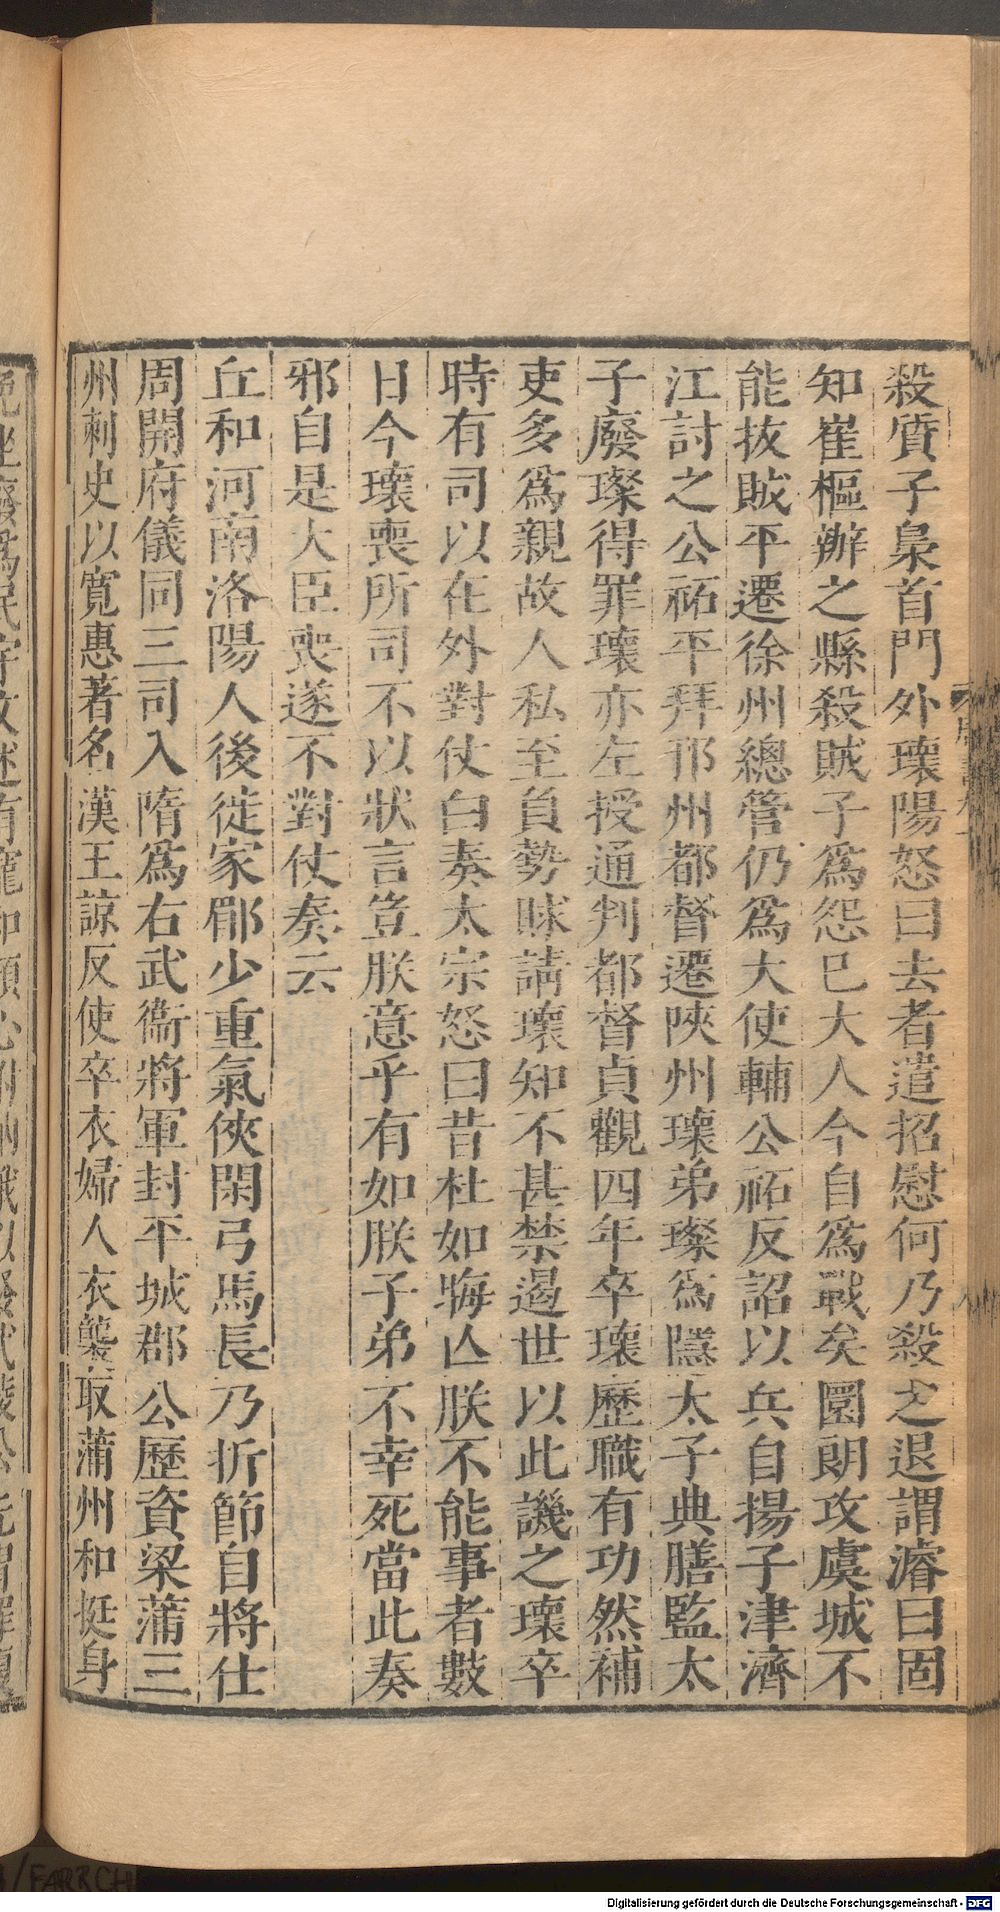 殺質子梟首門外瓌陽怒曰去者遣招慰何乃殺之退謂濬曰固
知崔樞辦之縣殺賊子爲怨已大人今自爲戰矣圓朗攻虞城不
能拔賊平遷徐州總管仍爲大使輔公祏反詔以兵自揚子津濟
江討之公祏平拜邢州都督遷陝州瓌弟璨爲隱太子典膳監太
子廢璨得罪瓌亦左授通判都督貞觀四年卒瓌歷職有功然補
吏多爲親故人私至負勢賕請瓌知不甚禁遏世以此譏之瓌卒
時有司以在外對仗白奏太宗怒曰昔杜如晦亾朕不能事者數
日今瓌喪所司不以狀言豈朕意乎有如朕子弟不幸死當此奏
邪自是大臣喪遂不對仗奏云
丘和河南洛陽人後徙家郿少重氣俠閑弓馬長乃折節自將仕
周開府儀同三司入隋爲右武衞將軍封平城郡公歷資梁蒲三
州刺史以寬惠著名漢王諒反使卒衣婦人衣襲取蒲州和挺身
Digitalisierung gefördert durch die Deutsche Forschungsgemeinschaft - DFG